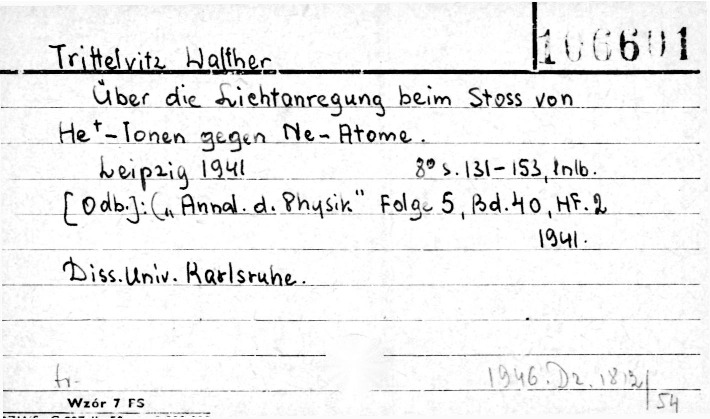 106601
Trittelvitz Walther
Über die Lichtanregung beim Stoss von
He+-Ionen gegen Ne-Atome.
Leipzig 1941 8° s. 131-153, 1nlb.
[Odb.]: („Annal. d. Physik" Folge 5, Bd. 40, Hf. 2
1941.
Diss. Univ. Karlsruhe.
tr.
1946. Dz. 1812/54
Wzór 7 FS